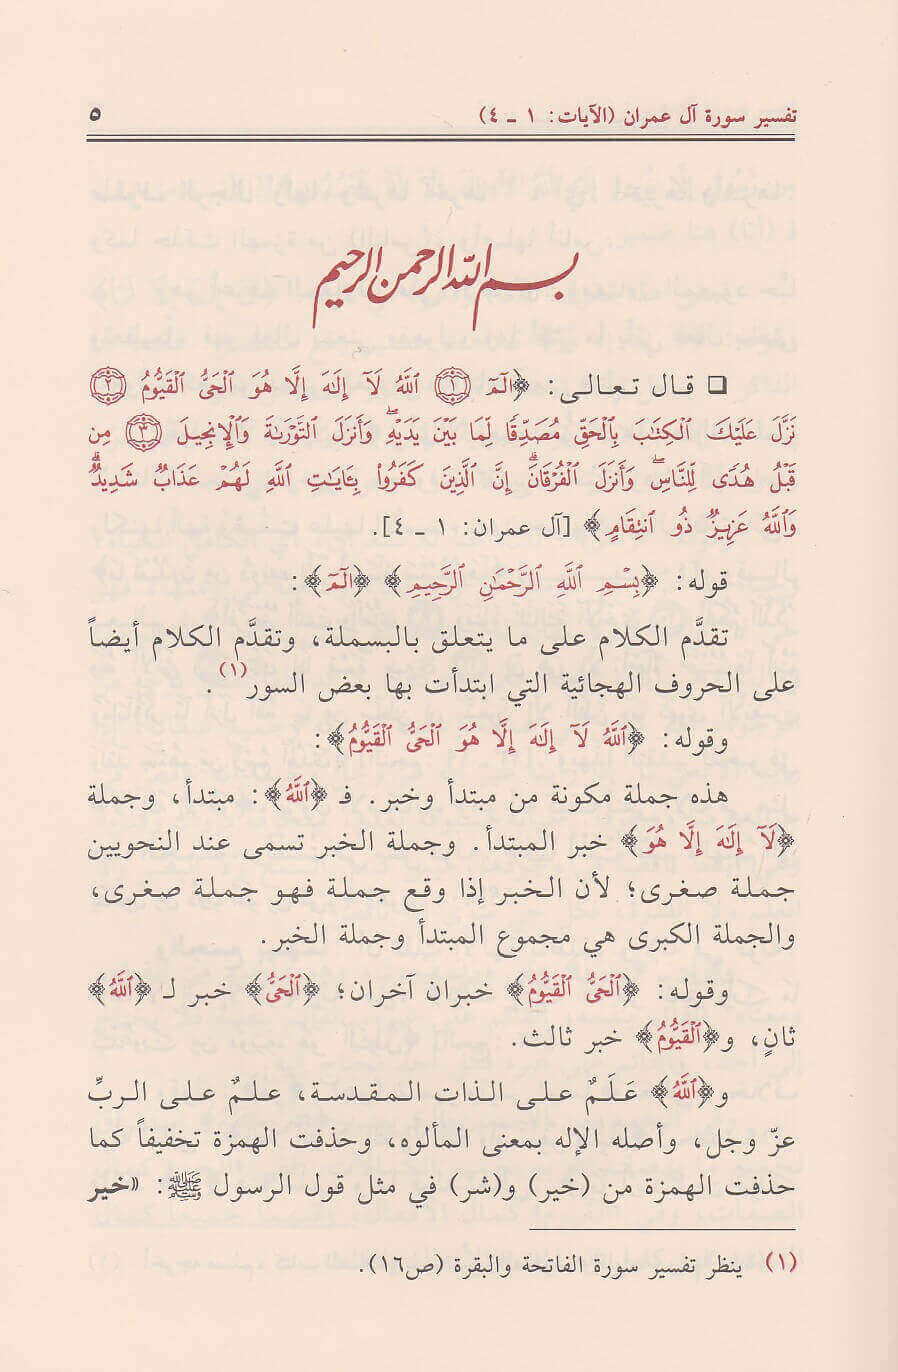 تفسير سورة آل عمران (الآيات: ١ ـ ٤)
٥
بسم الله الرحمن الرحيم
❑ قال تعالى: ﴿الٓمٓ ۝١ ٱللَّهُ لَآ إِلَٰهَ إِلَّا هُوَ ٱلْحَىُّ ٱلْقَيُّومُ ۝٢
نَزَّلَ عَلَيْكَ ٱلْكِتَٰبَ بِٱلْحَقِّ مُصَدِّقًا لِّمَا بَيْنَ يَدَيْهِ وَأَنزَلَ ٱلتَّوْرَىٰةَ وَٱلْإِنجِيلَ ۝٣ مِن
قَبْلُ هُدًى لِّلنَّاسِ وَأَنزَلَ ٱلْفُرْقَانَ ۗ إِنَّ ٱلَّذِينَ كَفَرُوا۟ بِـَٔايَٰتِ ٱللَّهِ لَهُمْ عَذَابٌ شَدِيدٌ ۗ
وَٱللَّهُ عَزِيزٌ ذُو ٱنتِقَامٍ﴾ [آل عمران: ١ ـ ٤].
قوله: ﴿بِسْمِ ٱللَّهِ ٱلرَّحْمَٰنِ ٱلرَّحِيمِ﴾ ﴿الٓمٓ﴾:
تقدَّم الكلام على ما يتعلق بالبسملة، وتقدَّم الكلام أيضاً
على الحروف الهجائية التي ابتدأت بها بعض السور(١).
وقوله: ﴿ٱللَّهُ لَآ إِلَٰهَ إِلَّا هُوَ ٱلْحَىُّ ٱلْقَيُّومُ﴾:
هذه جملة مكونة من مبتدأ وخبر. فـ ﴿ٱللَّهُ﴾: مبتدأ، وجملة
﴿لَآ إِلَٰهَ إِلَّا هُوَ﴾ خبر المبتدأ. وجملة الخبر تسمى عند النحويين
جملة صغرى؛ لأن الخبر إذا وقع جملة فهو جملة صغرى،
والجملة الكبرى هي مجموع المبتدأ وجملة الخبر.
وقوله: ﴿ٱلْحَىُّ ٱلْقَيُّومُ﴾ خبران آخران؛ ﴿ٱلْحَىُّ﴾ خبر لـ ﴿ٱللَّهُ﴾
ثانٍ، و﴿ٱلْقَيُّومُ﴾ خبر ثالث.
و﴿ٱللَّهُ﴾ عَلَمٌ على الذات المقدسة، علمٌ على الربِّ
عزّ وجل، وأصله الإله بمعنى المألوه، وحذفت الهمزة تخفيفاً كما
حذفت الهمزة من (خير) و(شر) في مثل قول الرسول ﷺ: «خير
(١) ينظر تفسير سورة الفاتحة والبقرة (ص١٦).